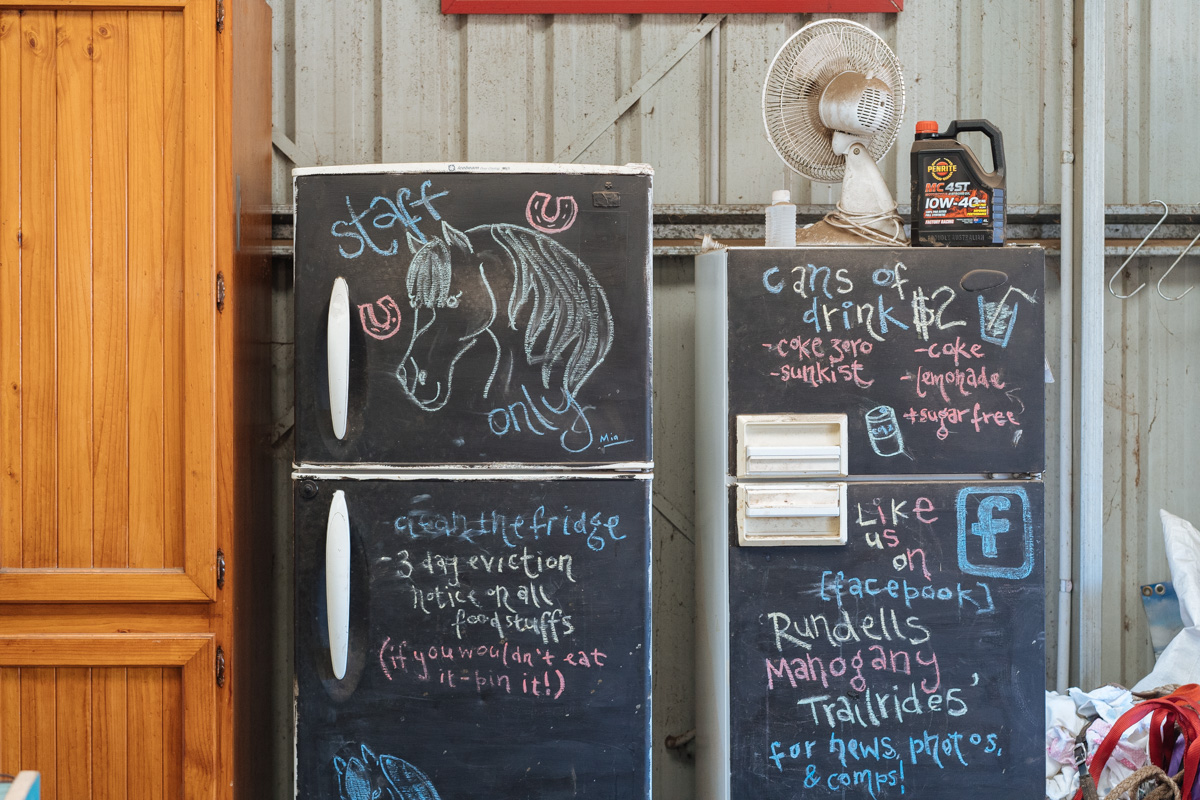 staff
only
Min
clean the fridge
-3 day eviction
notice on all
foodstuffs
(if you wouldn't eat
it-pin it!)
PENRITE
MC 4ST
10W-40
cans of
drink $2
-coke zero
-sunkist
-coke
-lemonade
+sugar free
Like
us
on
f
[facebook]
Rundells
Mahogany
Trailrides'
for news, photos,
& comps!